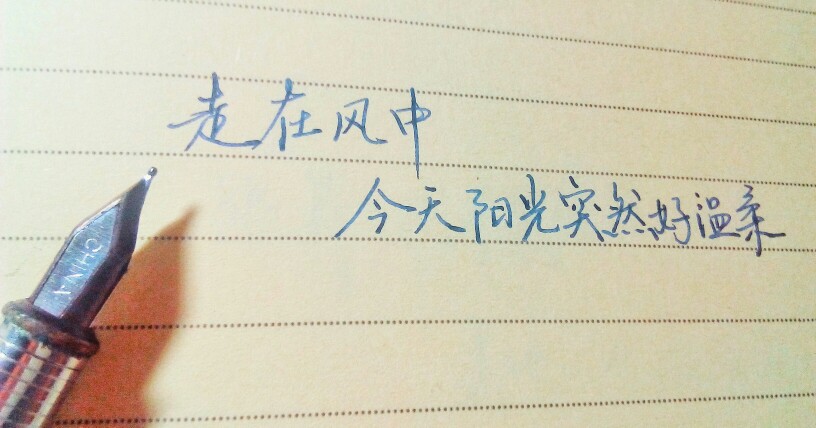 走在风中
今天阳光突然好温柔
CHINA